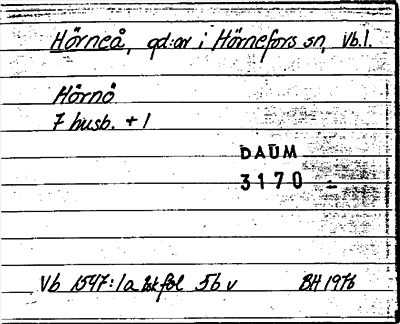 Hörneå, gd:ar i Hörnefors sn, Vb.l.
Hörnö
7 husb. + 1
DAUM
3170
Vb 1547:1a fol 5b v BH 1976